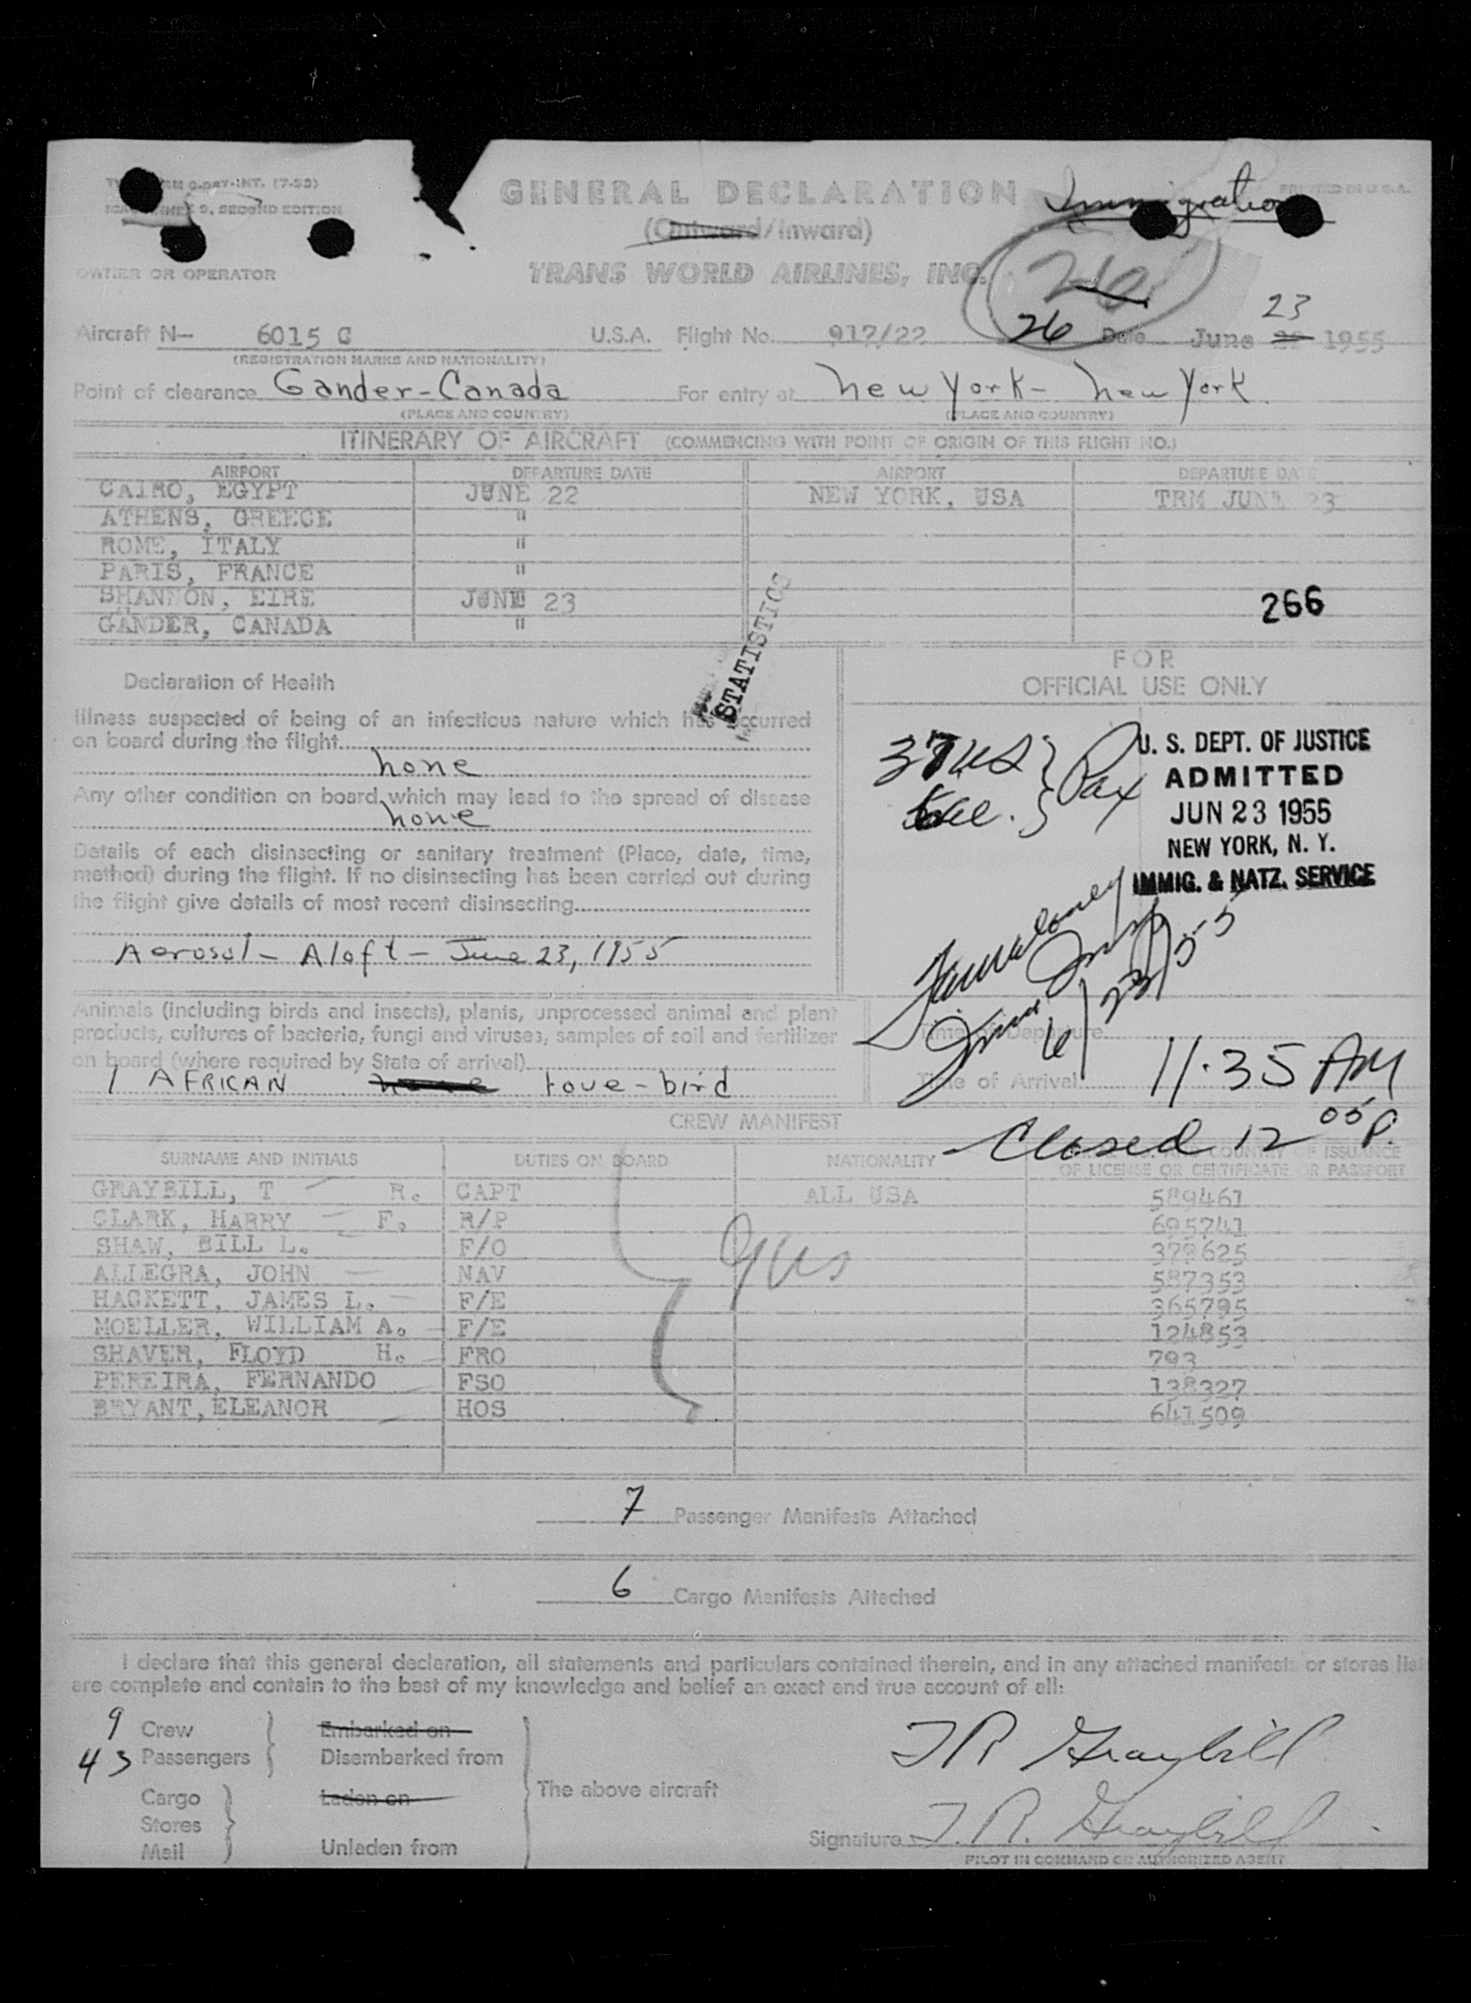 GENERAL DECLARATION
Immigration
PRINTED IN U.S.A.
ANNEX 9, SECOND EDITION
(Outward/Inward)
OWNER OR OPERATOR
TRANS WORLD AIRLINES, INC.
26
23
Aircraft N— 6015 C U.S.A. Flight No. 917/22 26 Date June 22 1955
(REGISTRATION MARKS AND NATIONALITY)
Point of clearance Gander-Canada For entry at New York - New York
(PLACE AND COUNTRY) (PLACE AND COUNTRY)
ITINERARY OF AIRCRAFT (COMMENCING WITH POINT OF ORIGIN OF THIS FLIGHT NO.)
AIRPORT DEPARTURE DATE AIRPORT DEPARTURE DATE
CAIRO, EGYPT JUNE 22 NEW YORK, USA TRM JUNE 23
ATHENS, GREECE "
ROME, ITALY "
PARIS, FRANCE "
SHANNON, EIRE JUNE 23 266
GANDER, CANADA "
STATISTICS
FOR
OFFICIAL USE ONLY
Declaration of Health
Illness suspected of being of an infectious nature which has occurred
on board during the flight
none
Any other condition on board which may lead to the spread of disease
none
Details of each disinsecting or sanitary treatment (Place, date, time,
method) during the flight. If no disinsecting has been carried out during
the flight give details of most recent disinsecting
Aerosol - Aloft - June 23, 1955
37 US } Pax
U. S. DEPT. OF JUSTICE
ADMITTED
JUN 23 1955
NEW YORK, N. Y.
IMMIG. & NATZ. SERVICE
6/23/55
Animals (including birds and insects), plants, unprocessed animal and plant
products, cultures of bacteria, fungi and viruses, samples of soil and fertilizer
on board (where required by State of arrival)
1 AFRICAN none love-bird
Time of Departure
Time of Arrival 11.35 AM
Closed 12 05 P.
CREW MANIFEST
SURNAME AND INITIALS DUTIES ON BOARD NATIONALITY COUNTRY OF ISSUANCE
OF LICENSE OR CERTIFICATE OR PASSPORT
GRAYBILL, T R. CAPT ALL USA 589461
CLARK, HARRY F. R/P 695741
SHAW, BILL L. F/O 379625
ALLEGRA, JOHN NAV 587353
HACKETT, JAMES L. F/E 365795
MOELLER, WILLIAM A. F/E 124853
SHAVER, FLOYD H. FRO 793
PEREIRA, FERNANDO FSO 138327
BRYANT, ELEANOR HOS 641509
9 US
7 Passenger Manifests Attached
6 Cargo Manifests Attached
I declare that this general declaration, all statements and particulars contained therein, and in any attached manifests or stores list
are complete and contain to the best of my knowledge and belief an exact and true account of all:
9 Crew Embarked on
43 Passengers Disembarked from
The above aircraft
Cargo Laden on
Stores
Mail Unladen from
T R Graybill
Signature T. R. Graybill
PILOT IN COMMAND OR AUTHORIZED AGENT